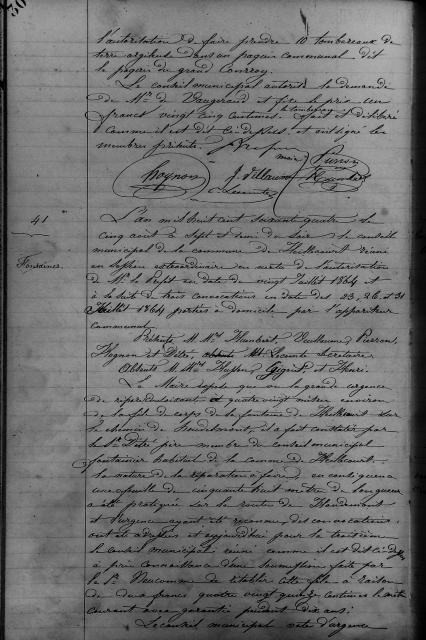 l'autorisation de faire prendre 10 tombereaux de
terre argileuse dans un paquis communal dit
le paquis du grand
Le conseil municipal autorise la demande
de Mr de Vaugeraud et fixe le prix à un
franc vingt cinq centimes le tombereau fait et délibéré
comme il est dit ci-dessus et ont signé les
membres présents.
maire
Hognon
Lecomte
41
L'an mil huit cent soixante quatre le
cinq août à sept et demi du soir le conseil
municipal de la commune de réuni
en session extraordinaire en suite de l'autorisation
de Mr le Prefet en date du vingt Juillet 1864 et
Fontaines
à la suite de trois convocations en date des 23, 26 et 31
Juillet 1864 portées à domicile par l'appariteur
communal.
Présents M Mrs Humbert, Vuillaume, Pierron,
Hognon et Lecomte Secrétaire.
Absents M Mrs Husson, et Henri.
Le Maire expose que vu la grande urgence
de quatre vingt mètres environ
de la file de corps de la fontaine de sur
le chemin de il a fait constater par
le Sr père membre du conseil municipal
fontainier habituel de la commune de
la nature de la réparation à faire en conséquence
une fouille de cinquante huit mètres de longueur
a été pratiquée sur la route de
et l'urgence ayant été reconnue des convocations
ont été adressées et aujourd'hui pour la troisième
le conseil municipal réuni comme il est dit ci-dessus
a pris connaissance d'une soumission faite par
le Sr de rétablir cette file à raison
de deux francs quatre vingt quinze centimes le mètre
courant avec garantie pendant dix ans.
Le conseil municipal vote d'urgence